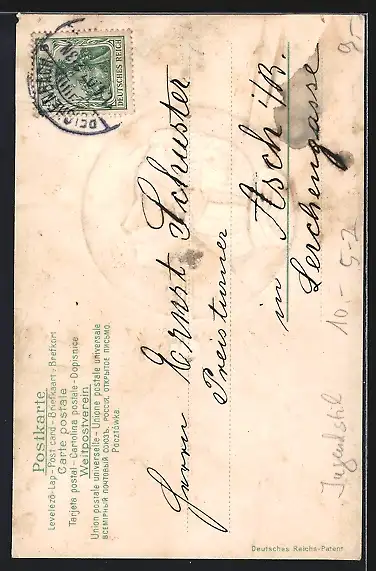 Postkarte
Levelező-Lap - Post card - Briefkaart - Brefkort
Carte postale
Tarjeta postal - Cartolina postale - Dopisnice
Weltpostverein
Union postale universelle - Unione postale universale
ВСЕМІРНЫЙ ПОЧТОВЫЙ СОЮЗЪ. РОССІЯ. ОТКРЫТОЕ ПИСЬМО.
Pocztówka.
DEUTSCHES REICH
Herrn Ernst Schuster
Preisturner
in Asch i/B.
Lerchengasse
Jugendstil
10.-
Deutsches Reichs-Patent